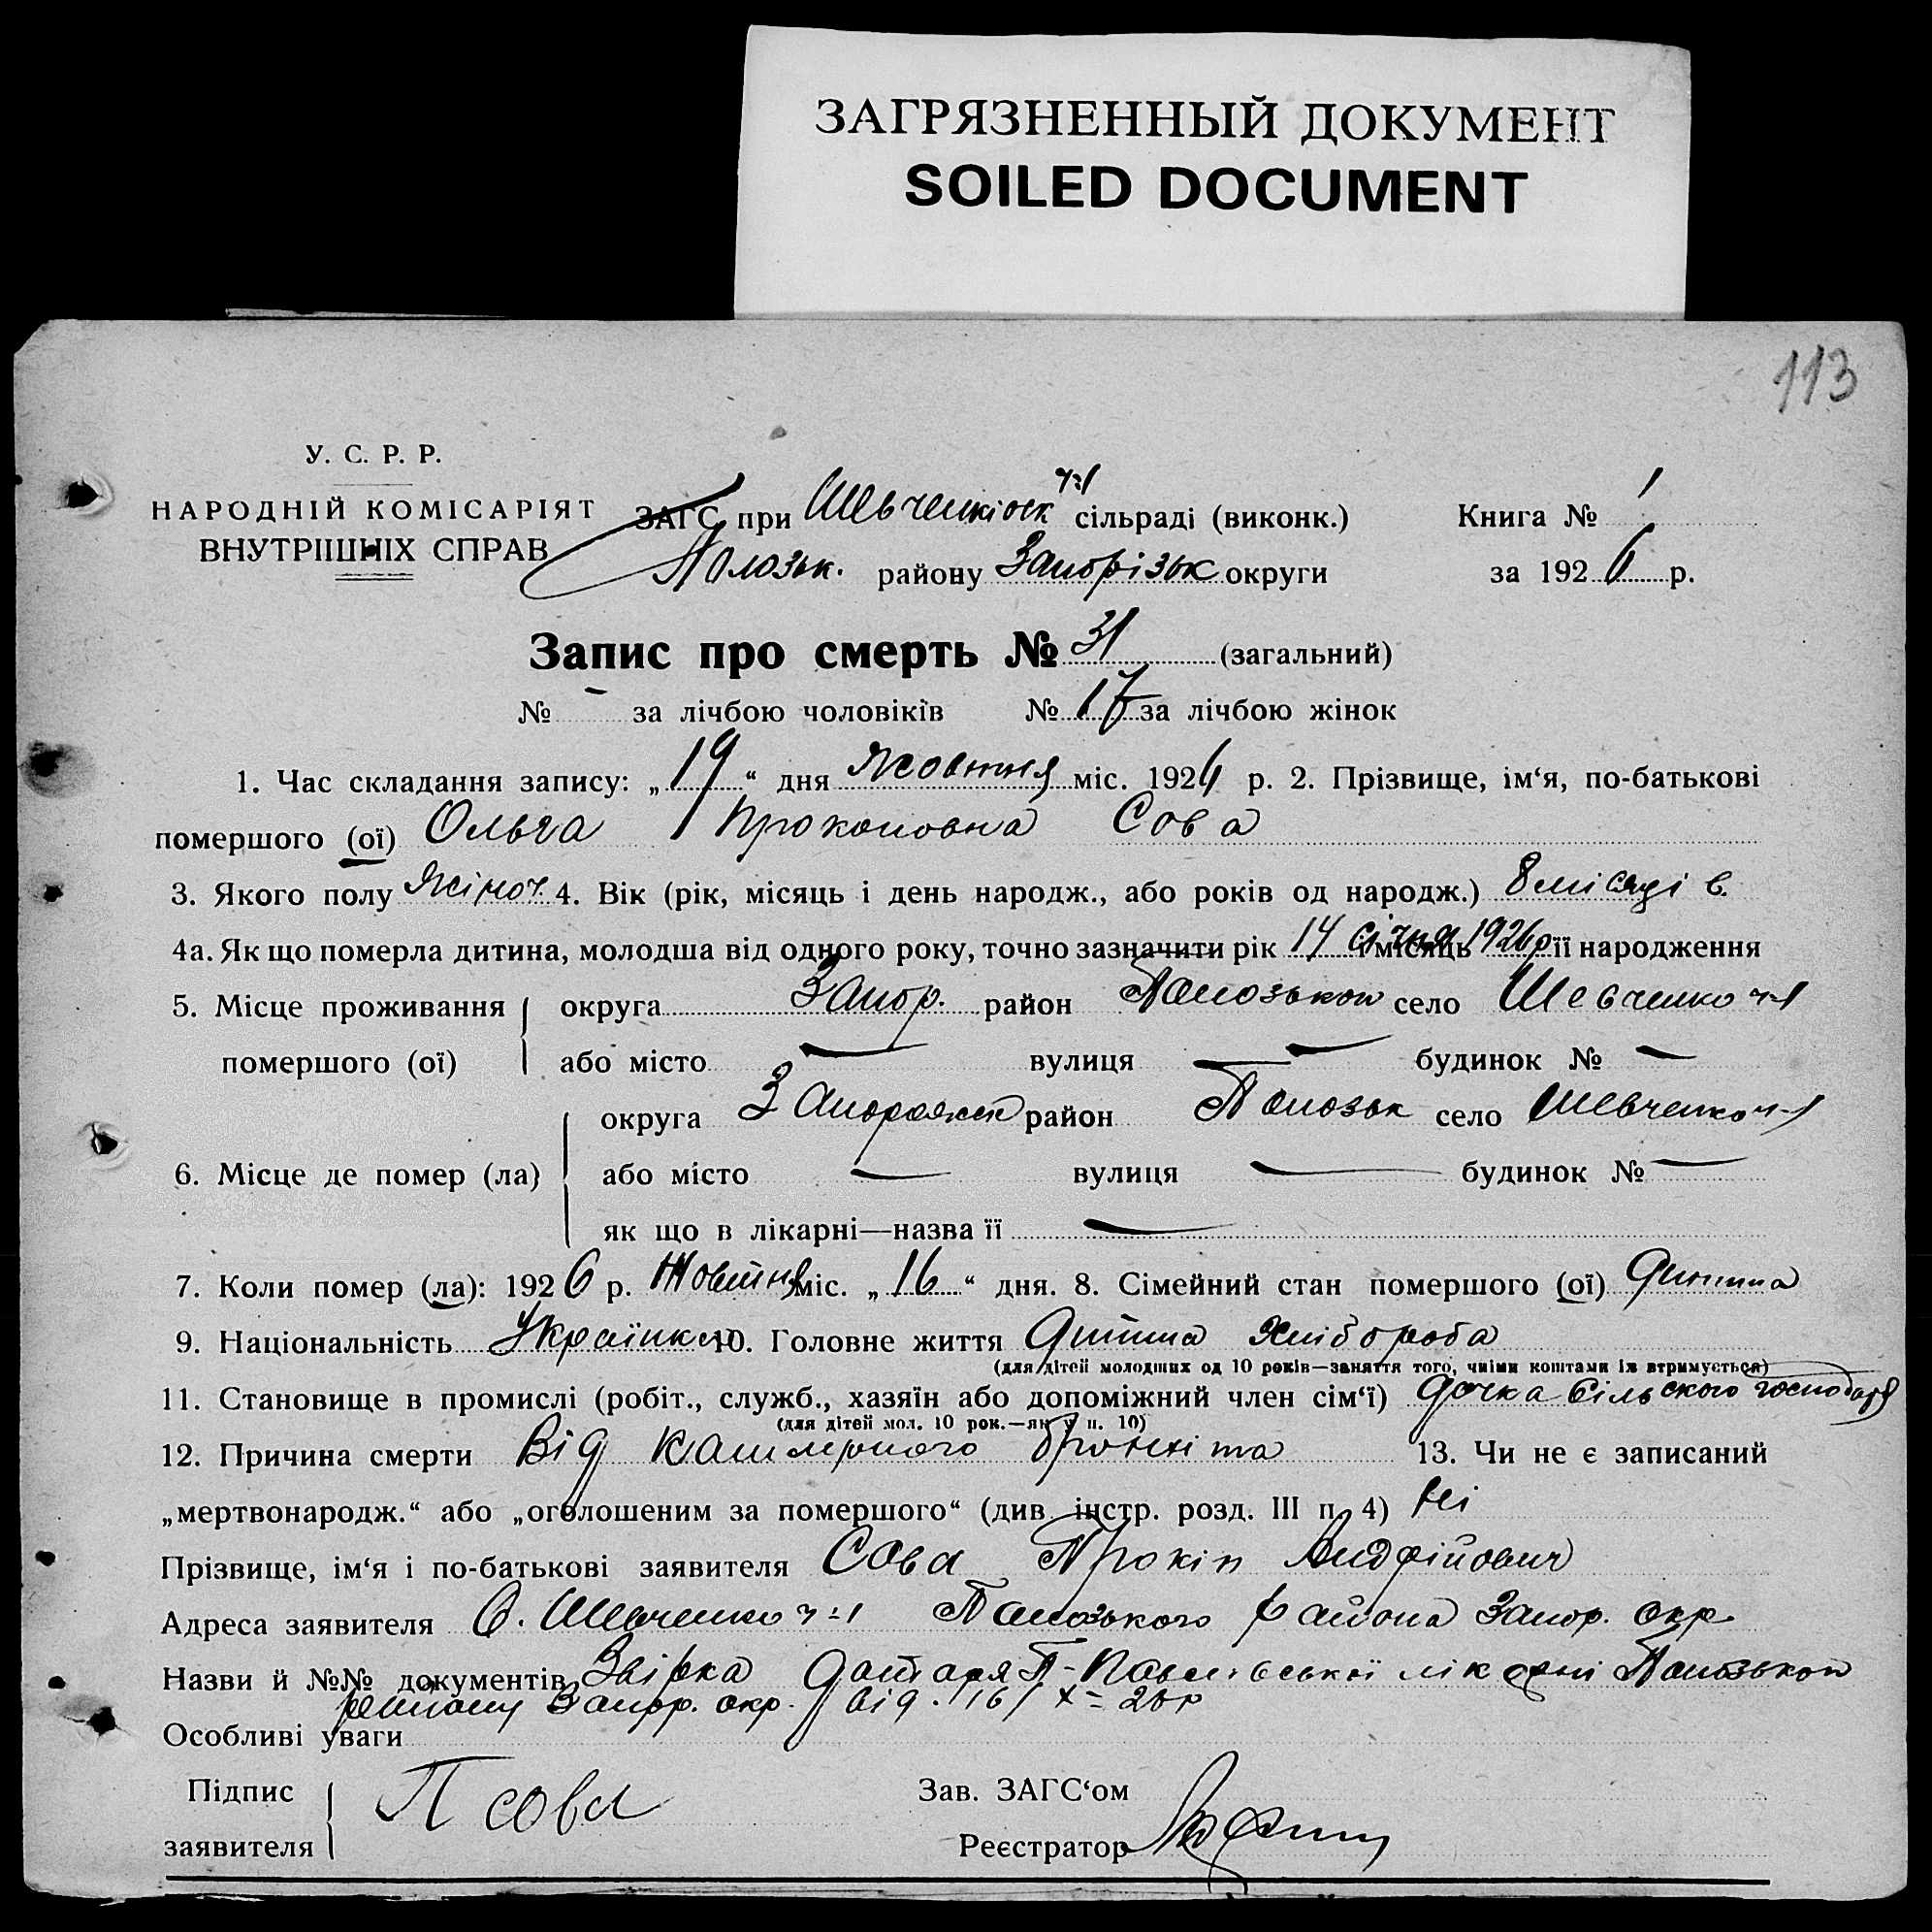 ЗАГРЯЗНЕННЫЙ ДОКУМЕНТ
SOILED DOCUMENT
113
У. С. Р. Р.
НАРОДНІЙ КОМІСАРІЯТ
ВНУТРІШНІХ СПРАВ
ЗАГС при Шевченківськ ч-1 сільраді (виконк.)
Полозьк. району Запорізьк округи
Книга № 1
за 1926 р.
Запис про смерть № 31 (загальний)
№ - за лічбою чоловіків № 17 за лічбою жінок
1. Час складання запису: „19“ дня Жовтня міс. 1926 р. 2. Прізвище, ім‘я, по-батькові
помершого (ої) Ольга Прокоповна Сова
3. Якого полу Жіноч. 4. Вік (рік, місяць і день народж., або років од народж.) 8 місяців
4а. Як що померла дитина, молодша від одного року, точно зазначити рік 14 січня і місяць 1926р її народження
5. Місце проживання помершого (ої) округа Запор. район Полозькой село Шевченко ч-1
або місто — вулиця — будинок № —
6. Місце де помер (ла) округа Запорожск район Полозьк село Шевченко ч-1
або місто — вулиця — будинок № —
як що в лікарні—назва її —
7. Коли помер (ла): 1926 р. Жовтня міс. „16“ дня. 8. Сімейний стан помершого (ої) дитина
9. Національність Українка 10. Головне життя Дитина хлібороба
(для дітей молодших од 10 років—заняття того, чиїми коштами їх втримується)
11. Становище в промислі (робіт., служб., хазяїн або допоміжний член сім‘ї) дочка сільского господаря
(для дітей мол. 10 рок.—як у п. 10)
12. Причина смерти Від катарного бронхіта 13. Чи не є записаний
„мертвонародж.“ або „оголошеним за помершого“ (див. інстр. розд. III п. 4) Ні
Прізвище, ім‘я і по-батькові заявителя Сова Прокіп Андрійович
Адреса заявителя С. Шевченко ч-1 Полозького района Запор. окр
Назви й №№ документів Звірка П-Павлівської лікарні Полозькой
району Запор. окр. від. 16/X-26р
Особливі уваги
Підпис заявителя П сова
Зав. ЗАГС‘ом
Реєстратор